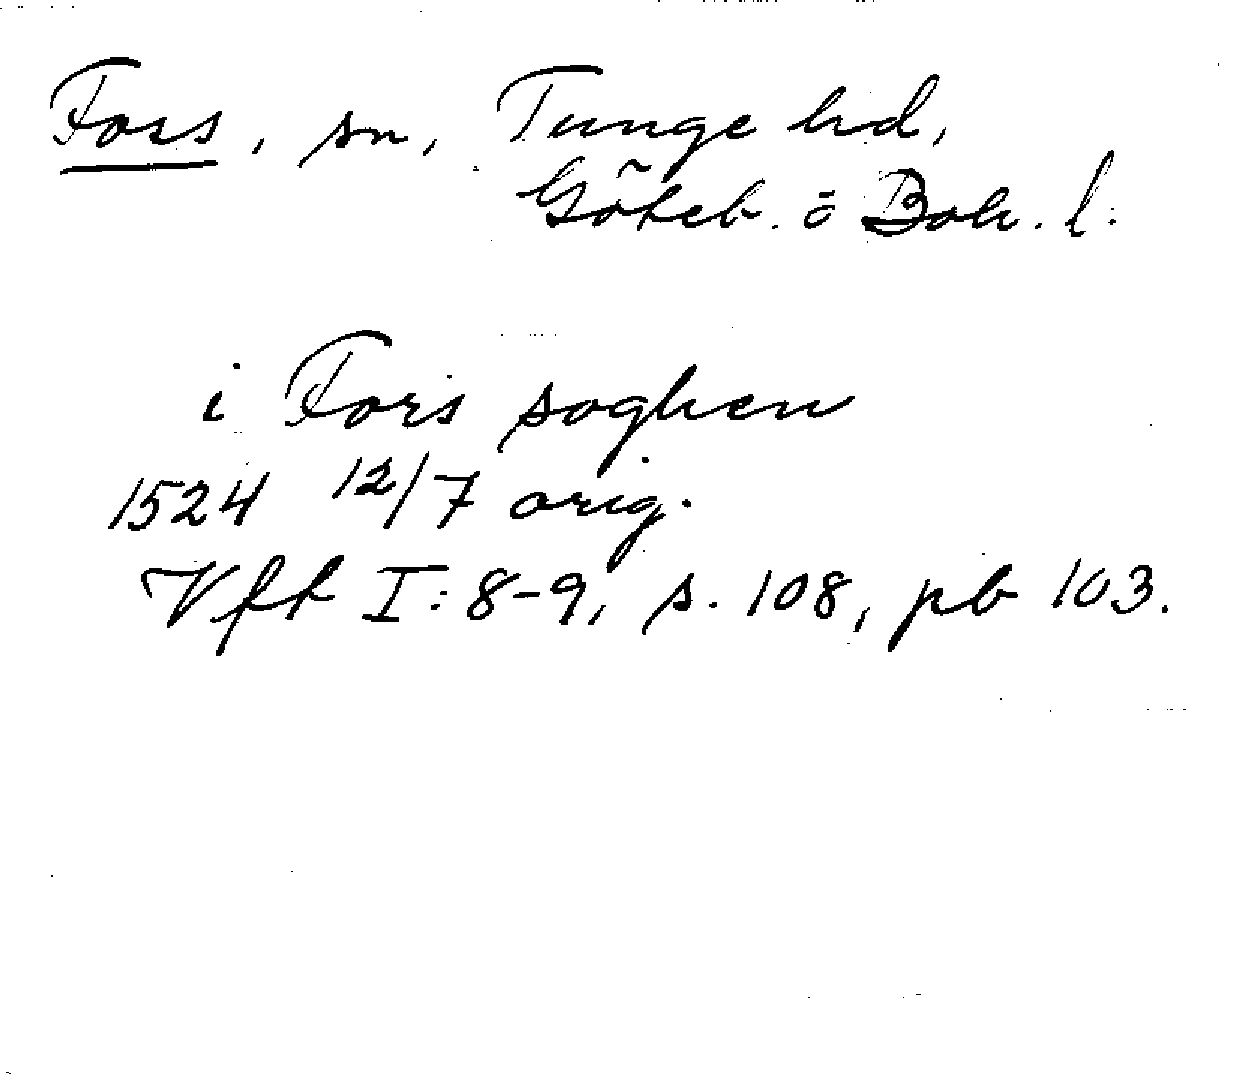 Foss, sn, Tunge hd,
Göteb. o Boh. l.
i Fors soghen
1524 12/7 orig.
Vft I: 8-9, s. 108, pb 103.